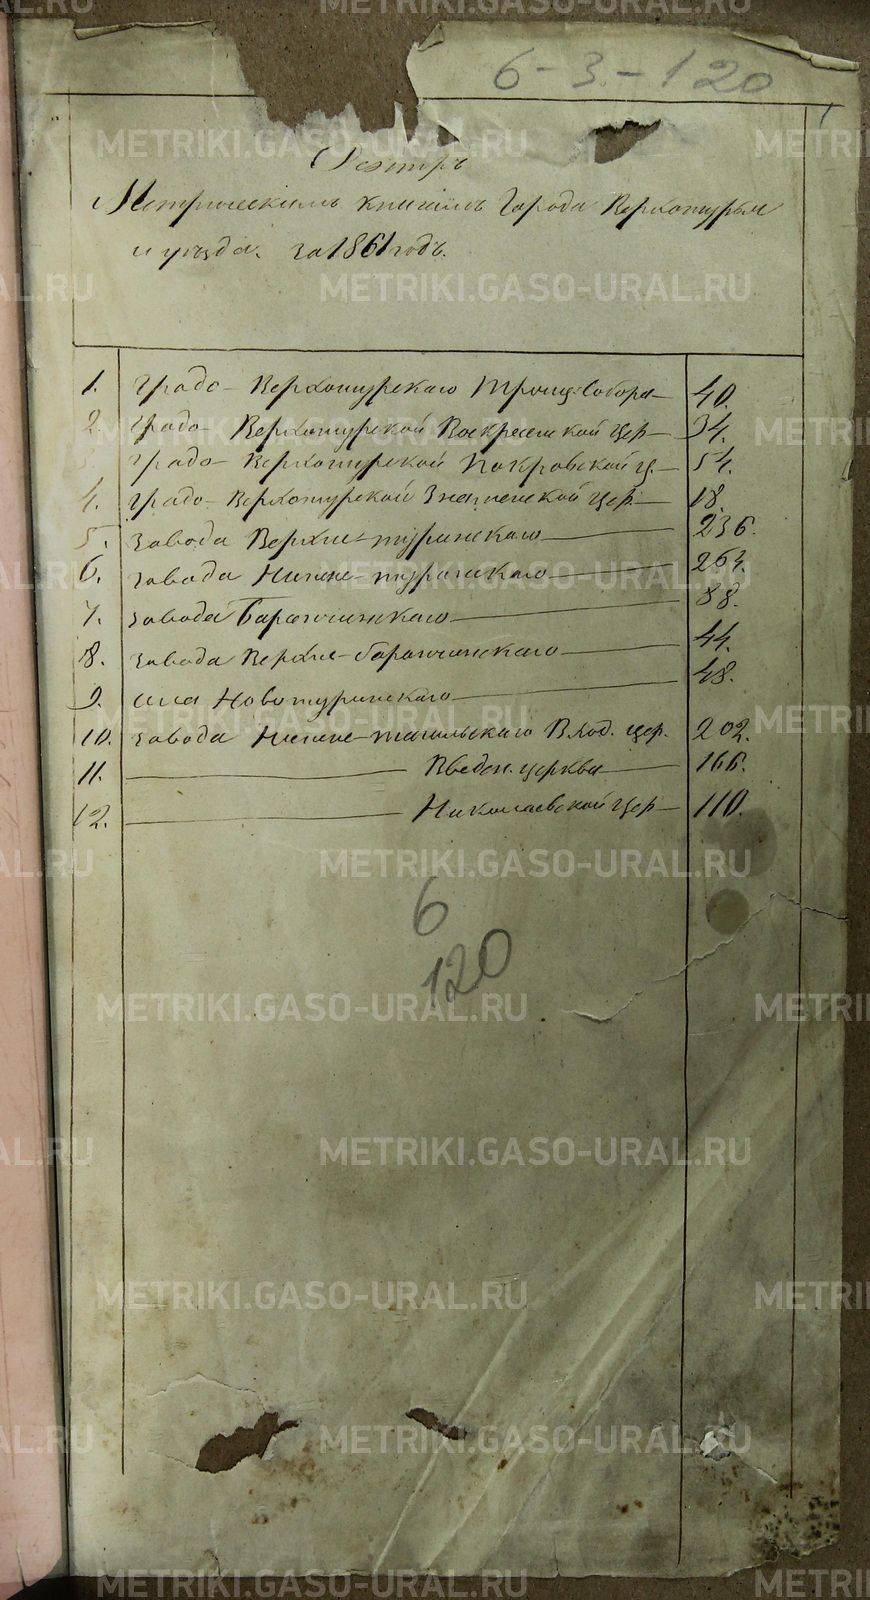 6-3-120
1
Реэстръ
Метрическимъ книгамъ Города Верхотурья
и уѣзда. за 1861 годъ.
1. Градо-Верхотурскаго Троиц: Собора — 40.
2. Градо-Верхотурской Воскресенской цер — 34.
3. Градо-Верхотурской Покровской ц. — 54.
4. Градо-Верхотурской Знаменской цер. — 18.
5. завода Верхне-туринскаго — 236.
6. завода Нижне-туринскаго — 264.
7. завода Баранчинскаго — 88.
8. завода Верхне-баранчинскаго — 44.
9. села Новотуринскаго — 48.
10. завода Нижне-тагильскаго Вход. цер. 202.
11. — Введен. церкви — 166.
12. — Николаевской цер — 110.
6
120
METRIKI.GASO-URAL.RU